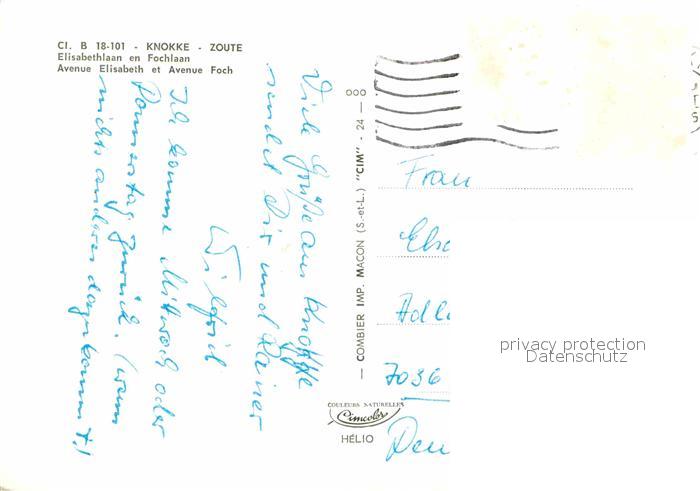 Cl. B 18-101 - KNOKKE - ZOUTE
Elisabethlaan en Fochlaan
Avenue Elisabeth et Avenue Foch
Viele Grüße aus Knokke
sendet Dir und Rainer
Wilfried
Ich komme Mittwoch oder
Donnerstag zurück. (wenn
nichts anderes dazu kommt!)
000
— COMBIER IMP. MACON (S.-et-L.) "CIM" - 24 —
COULEURS NATURELLES
Cimcolor
HÉLIO
Frau
Else
Adle
7036
privacy protection
Datenschutz